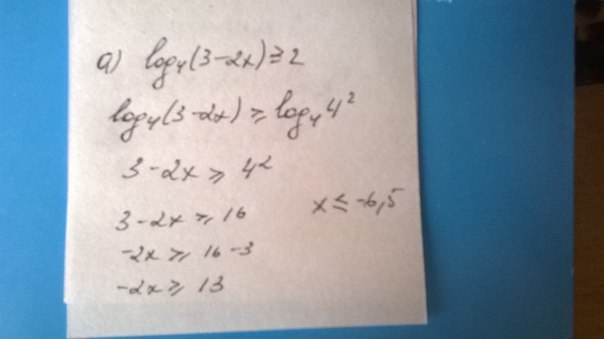 а) log₄(3-2x)≥2
log₄(3-2x)≥log₄4²
3-2x≥4²
3-2x≥16
-2x≥16-3
-2x≥13
x≤-6,5